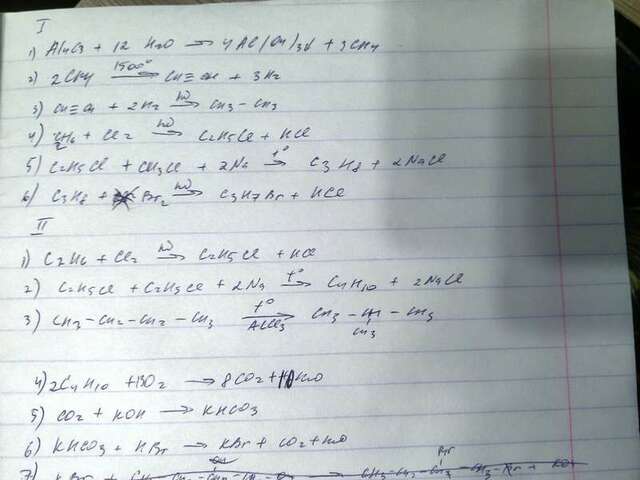 I
1) Al4C3 + 12 H2O → 4Al(OH)3↓ + 3CH4
2) 2CH4 1500° → CH≡CH + 3H2
3) CH≡CH + 2H2 hν → CH3-CH3
4) C2H6 + Cl2 hν → C2H5Cl + HCl
5) C2H5Cl + CH3Cl + 2Na t° → C3H8 + 2NaCl
6) C3H8 + Br2 hν → C3H7Br + HCl
II
1) C2H6 + Cl2 hν → C2H5Cl + HCl
2) C2H5Cl + C2H5Cl + 2Na t° → C4H10 + 2NaCl
3) CH3-CH2-CH2-CH3 t° AlCl3 → CH3-CH-CH3
CH3
4) 2C4H10 + 13O2 → 8CO2 + 10H2O
5) CO2 + KOH → KHCO3
6) KHCO3 + HBr → KBr + CO2 + H2O
7) KBr +